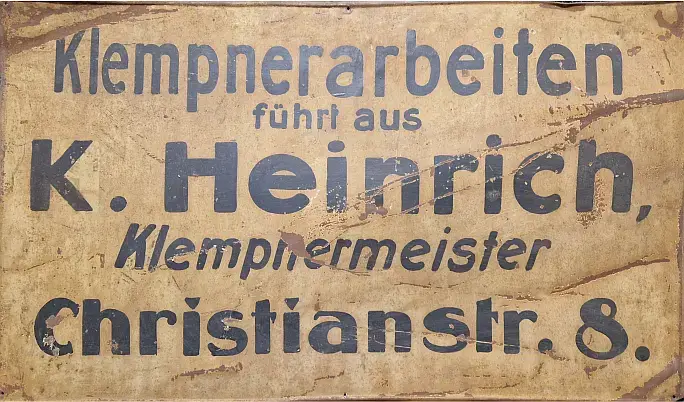 Klempnerarbeiten
führt aus
K. Heinrich,
Klempnermeister
Christianstr. 8.